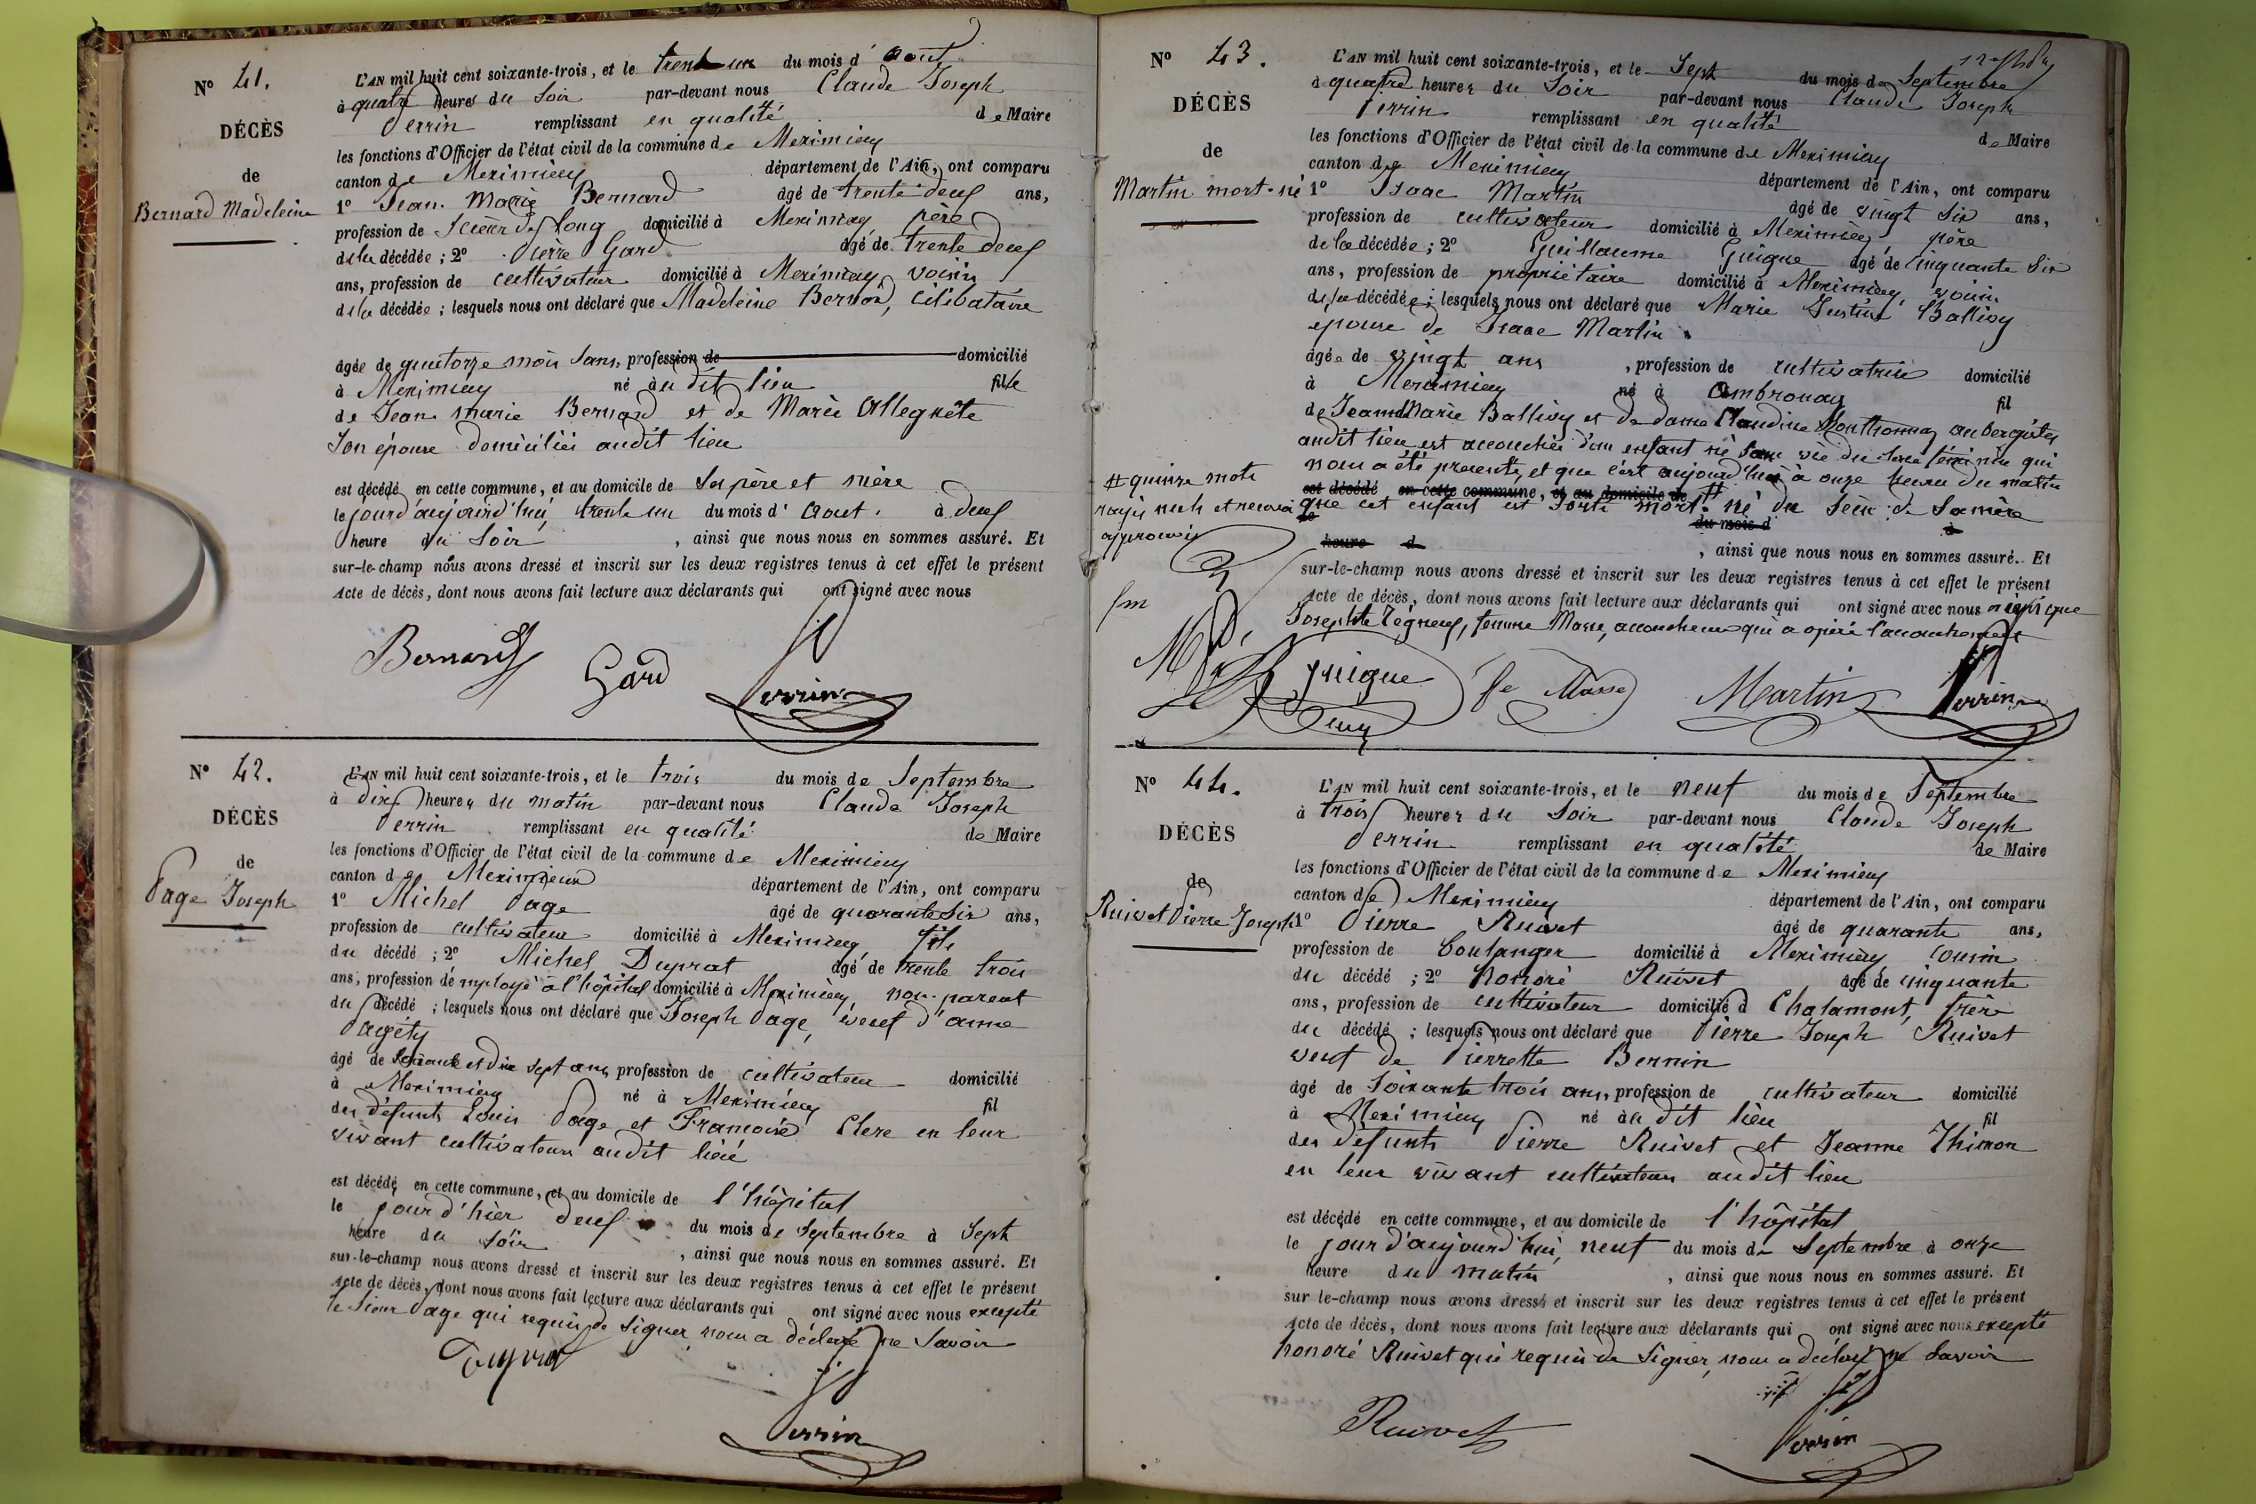 N° 41.
DÉCÈS
de
Bernard Madeleine
L'AN mil huit cent soixante-trois, et le trente un du mois d'aout
à quatre heures du soir par-devant nous Claude Joseph
Perrin remplissant en qualité de Maire
les fonctions d'Officier de l'état civil de la commune de Meximieux
canton de Meximieux département de l'Ain, ont comparu
1° Jean Marie Bernard âgé de trente deux ans,
profession de scieur de long domicilié à Meximieux père
de la décédée ; 2° Pierre Gard âgé de trente deux
ans, profession de cultivateur domicilié à Meximieux, voisin
de la décédée ; lesquels nous ont déclaré que Madeleine Bernard, célibataire
âgée de quatorze mois sans, profession de domicilié
à Meximieux né au dit lieu fille
de Jean marie Bernard et de Marie Allegrète
son épouse domiciliés audit lieu
est décédé en cette commune, et au domicile de ses père et mère
le jour d'aujourd'hui, trente un du mois d'aout à deux
heure du soir , ainsi que nous nous en sommes assuré. Et
sur-le-champ nous avons dressé et inscrit sur les deux registres tenus à cet effet le présent
acte de décès, dont nous avons fait lecture aux déclarants qui ont signé avec nous
Bernard Gard Perrin
N° 42.
DÉCÈS
de
Page Joseph
L'AN mil huit cent soixante-trois, et le trois du mois de Septembre
à dix heures du matin par-devant nous Claude Joseph
Perrin remplissant en qualité de Maire
les fonctions d'Officier de l'état civil de la commune de Meximieux
canton de Meximieux département de l'Ain, ont comparu
1° Michel Page âgé de quarante six ans,
profession de cultivateur domicilié à Meximieux, fils
du décédé ; 2° Michel Duprat âgé de trente trois
ans, profession d'employé à l'hôpital domicilié à Meximieux, non parent
du décédé ; lesquels nous ont déclaré que Joseph Page, veuf d'anne
Pagéty
âgé de soixante et dix sept ans, profession de cultivateur domicilié
à Meximieux né à Meximieux fil
des défunts Louis Page et Francoise Clere en leur
vivant cultivateurs audit lieu
est décédé en cette commune, et au domicile de l'hôpital
le jour d'hier deux du mois de Septembre à Sept
heure du soir , ainsi que nous nous en sommes assuré. Et
sur-le-champ nous avons dressé et inscrit sur les deux registres tenus à cet effet le présent
acte de décès, dont nous avons fait lecture aux déclarants qui ont signé avec nous excepté
le sieur Page qui requis de signer, nous a déclaré ne savoir
Duprat
Perrin
N° 43.
DÉCÈS
de
Martin mort-né
L'AN mil huit cent soixante-trois, et le Sept du mois de Septembre
à quatre heures du Soir par-devant nous Claude Joseph
Perrin remplissant en qualité de Maire
les fonctions d'Officier de l'état civil de la commune de Meximieux
canton de Meximieux département de l'Ain, ont comparu
1° Isaac Martin âgé de vingt six ans,
profession de cultivateur domicilié à Meximieux, père
de la décédée ; 2° Guillaume Guigue âgé de cinquante six
ans, profession de propriétaire domicilié à Meximieux, voisin
de la décédée ; lesquels nous ont déclaré que Marie Justine Ballivy
epouse de Isaac Martin
âgée de vingt ans , profession de cultivatrice domicilié
à Meximieux né à Ambronay fil
de Jean Marie Ballivy et de dame Claudine Monthonnaz aubergistes
audit lieu est accouchée d'un enfant né sans vie du sexe féminin qui
nous a été presenté, et que c'est aujourd'hui à onze heures du matin
est décédé en cette commune, et au domicile de #
que cet enfant est sorti mort-né du sein de sa mère
le du mois d à
heure d , ainsi que nous nous en sommes assuré. Et
# quinze mots
rayés nuls et renvoi
approuvés
sur-le-champ nous avons dressé et inscrit sur les deux registres tenus à cet effet le présent
acte de décès, dont nous avons fait lecture aux déclarants qui ont signé avec nous
femme Masse, accoucheuse qui a opéré l'accouchement
guigue fe Masse Martin Perrin
N° 44.
DÉCÈS
de
Ruivet Pierre Joseph
L'AN mil huit cent soixante-trois, et le neuf du mois de Septembre
à trois heures du soir par-devant nous Claude Joseph
Perrin remplissant en qualité de Maire
les fonctions d'Officier de l'état civil de la commune de Meximieux
canton de Meximieux département de l'Ain, ont comparu
1° Pierre Ruivet âgé de quarante ans,
profession de boulanger domicilié à Meximieux cousin
du décédé ; 2° honoré Ruivet âgé de cinquante
ans, profession de cultivateur domicilié à Chalamont, frère
du décédé ; lesquels nous ont déclaré que Pierre Joseph Ruivet
veuf de Pierrette Bernin
âgé de soixante trois ans, profession de cultivateur domicilié
à Meximieux né au dit lieu fil
des défunts Pierre Ruivet et Jeanne Thimon
en leur vivant cultivateurs audit lieu
est décédé en cette commune, et au domicile de l'hôpital
le jour d'aujourd'hui, neuf du mois de Septembre à onze
heure du matin , ainsi que nous nous en sommes assuré. Et
sur le-champ nous avons dressé et inscrit sur les deux registres tenus à cet effet le présent
acte de décès, dont nous avons fait lecture aux déclarants qui ont signé avec nous excepté
honoré Ruivet qui requis de signer, nous a déclaré ne savoir
Ruivet
Perrin